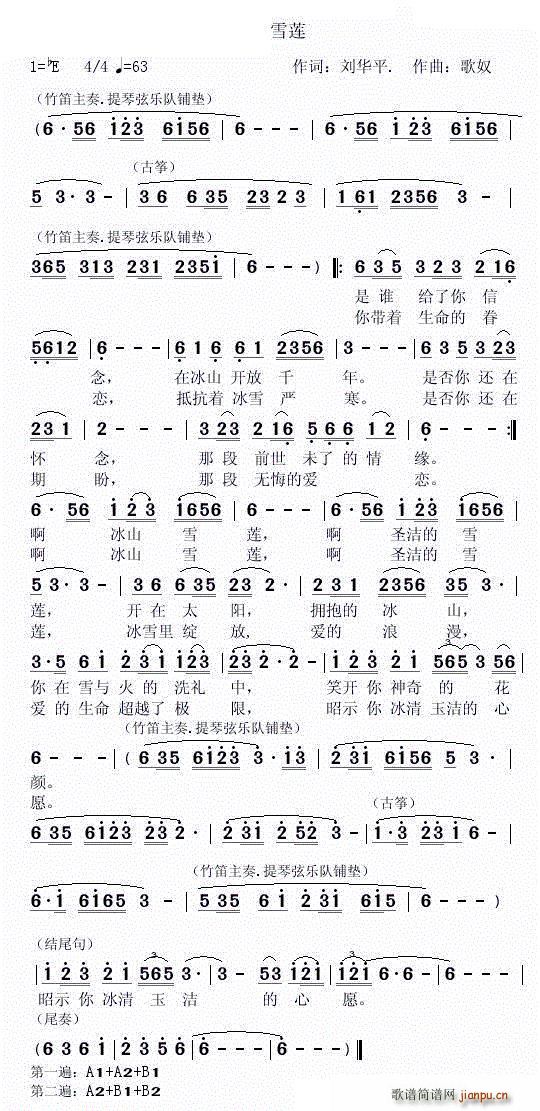 雪莲
1=♭E 4/4 ♩=63 作词：刘华平. 作曲：歌奴
（竹笛主奏.提琴弦乐队铺垫）
(6·56 i23 6i56 | 6 - - - | 6·56 i23 6i56 |
（古筝）
5 3·3 - | 36 635 2323 | 161 2356 3 - |
（竹笛主奏.提琴弦乐队铺垫）
365 313 231 2351 | 6 - - - ) ‖: 635 323 216 |
是谁 给了你 信
你带着 生命的 眷
5612 | 6 - - - | 616 61 2356 | 3 - - - | 635 323 |
念， 在冰山 开放 千 年。 是否你 还在
恋， 抵抗着 冰雪 严 寒。 是否你 还在
231 | 2 - - - | 323 216 566 12 | 6 - - - :‖
怀 念， 那段 前世 未了的情 缘。
期 盼， 那段 无悔的爱 恋。
6·56 i23 i656 | 6 - - - | 6·56 i23 i656 |
啊 冰山 雪 莲， 啊 圣洁的 雪
啊 冰山 雪 莲， 啊 圣洁的 雪
5 3 3· - | 36 635 23 2· | 231 2356 35 3· |
莲， 开在太 阳， 拥抱的 冰 山，
莲， 冰雪里绽 放， 爱的 浪 漫，
3·5 6i 231 i23 | 23 2·2 - | i23 2i 565 3 56 |
你在雪与火的洗礼 中， 笑开你神奇 的 花
爱的生命超越了极 限， 昭示你冰清玉洁的心
（竹笛主奏.提琴弦乐队铺垫）
6 - - - | (635 6i23 3·i3 | 231 6i56 5 3· |
颜。
愿。
（古筝）
635 6i23 23 2· | 231 252 3 - | i·3 23i 6 - |
（竹笛主奏.提琴弦乐队铺垫）
6·i 6i65 3 - | 535 6i 231 6i5 | 6 - - - )
（结尾句）
| i23 2i 565 3· | 3 - 53 i2i | i2i 6·6 - | 6 - - - |
昭示你冰清 玉 洁 的 心 愿。
（尾奏）
(6 3 6 i | 2 3 5 6 | 6 - - - | 6 - - - )‖
第一遍：A1+A2+B1
第二遍：A2+B1+B2
歌谱简谱网
jianpu.cn